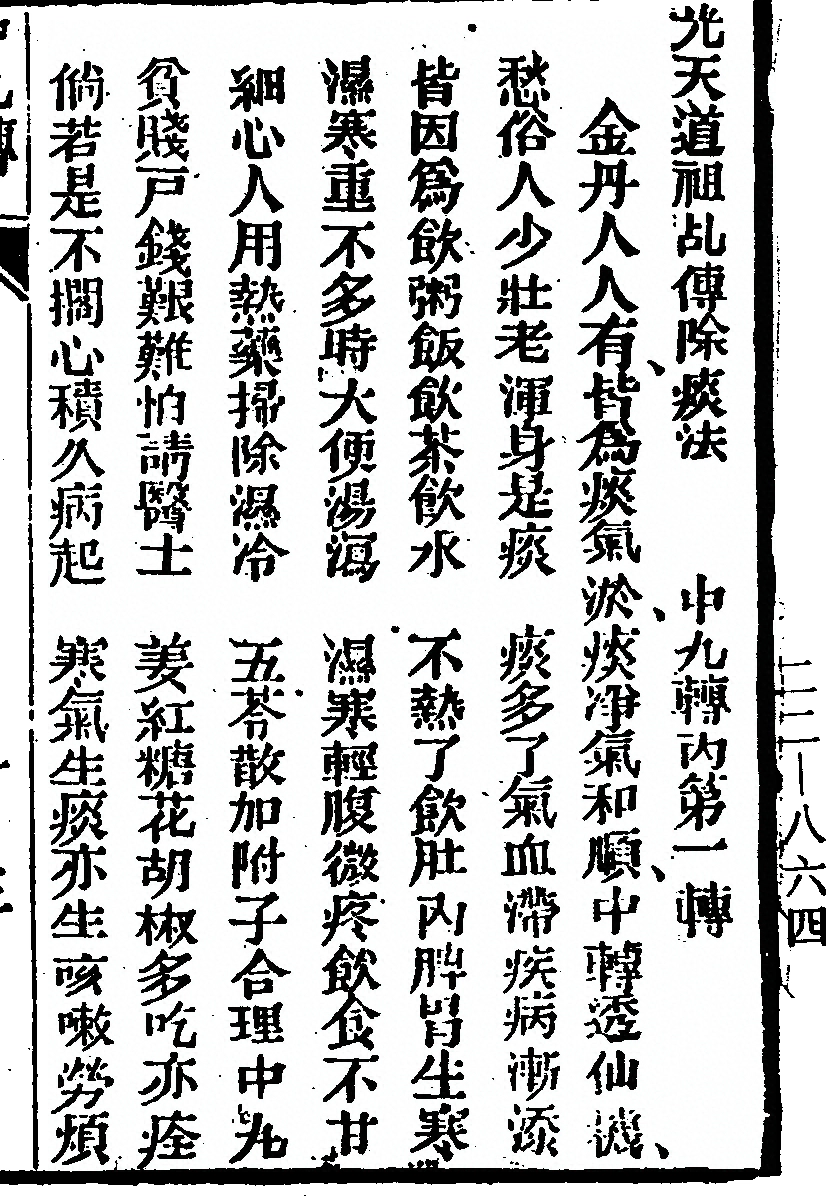 光天道祖乩傳除痰法 中九轉內第一轉
金丹人人有、皆為痰氣淤、痰淨氣和順、中轉透仙機、
愁俗人少壯老渾身是痰 痰多了氣血滯疾病漸添
皆因為飲粥飯飲茶飲水 不熱了飲肚內脾胃生寒
濕寒重不多時大便湯瀉 濕寒輕腹微疼飲食不甘
細心人用熱藥掃除濕冷 五苓散加附子合理中丸
貧賤戶錢艱難怕請醫士 姜紅糖花胡椒多吃亦痊
倘若是不擱心積久病起 寒氣生痰亦生咳嗽勞煩
二二—八六四